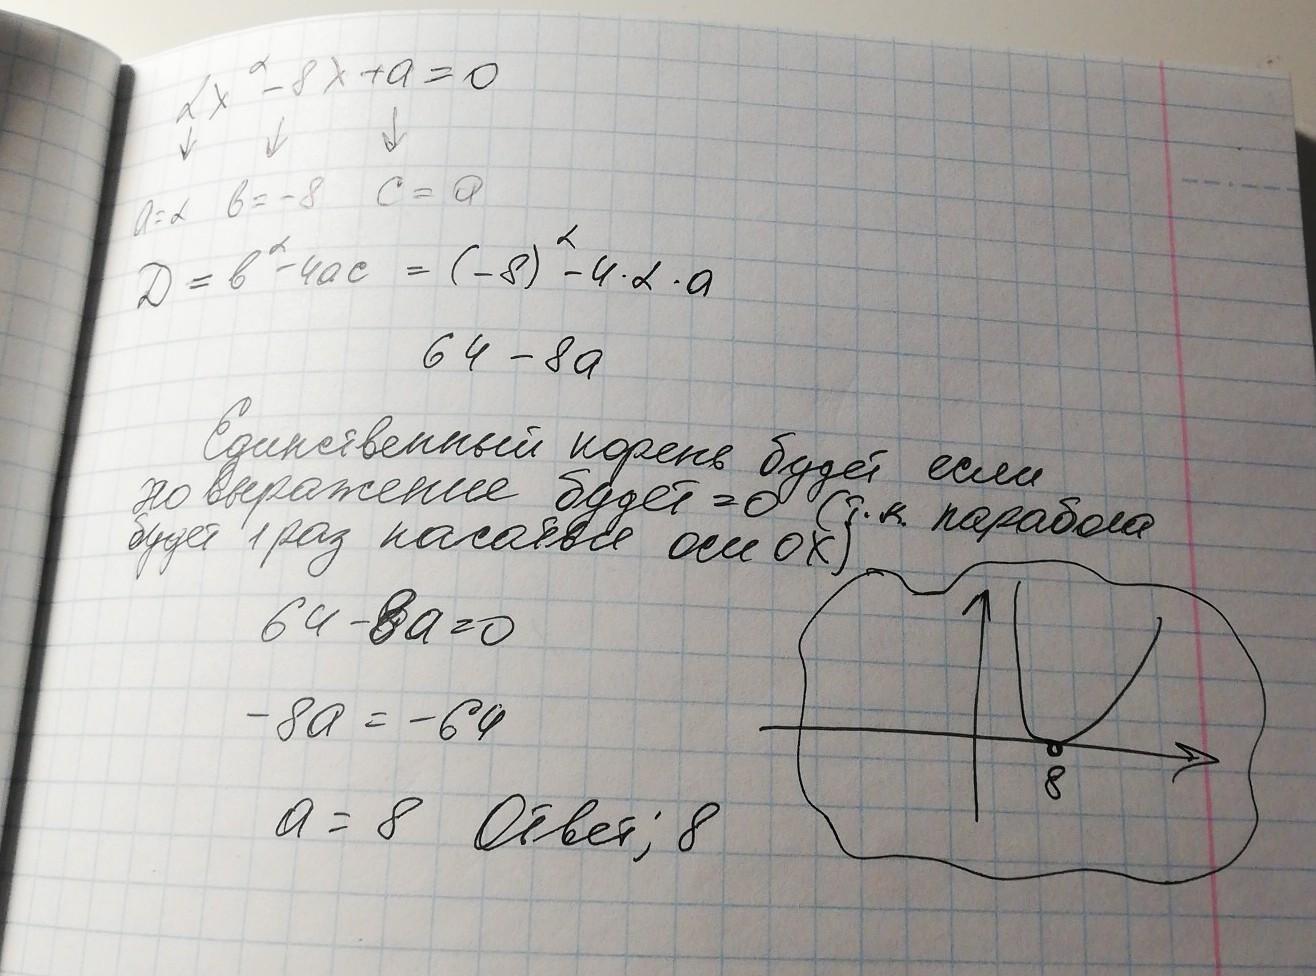 2x² - 8x + a = 0
a=2 в=-8 c=a
D = в² - 4ac = (-8)² - 4·2·a
64 - 8a
Единственный корень будет если
но выражение будет =0 (т.к. парабола
будет 1 раз касаться оси OX)
64 - 8a = 0
-8a = -64
8
a = 8 Ответ; 8